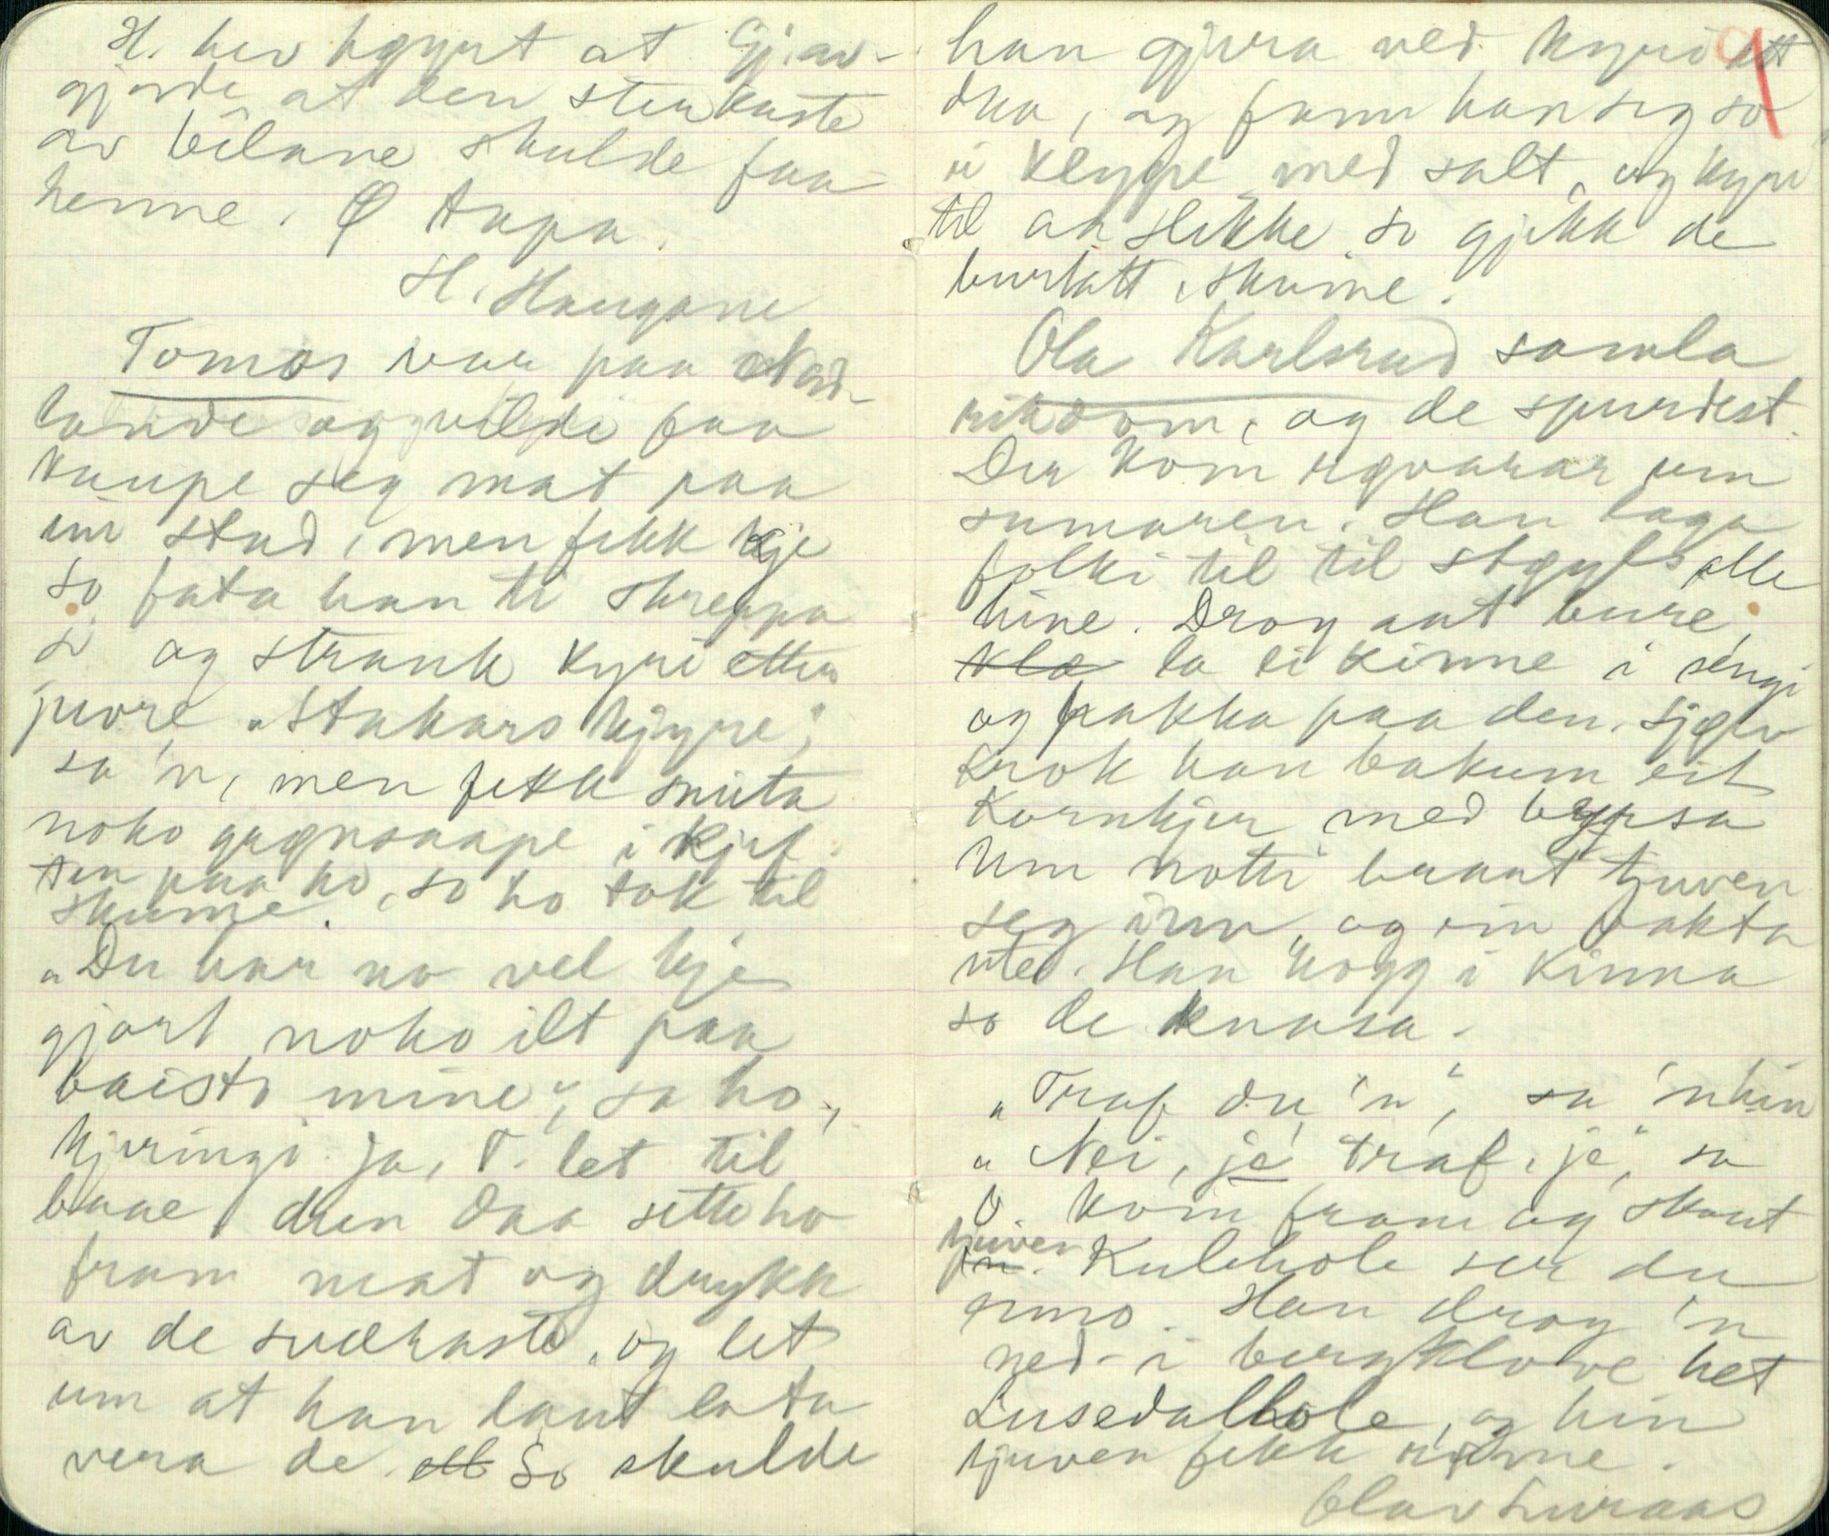 H. hev høyrt at Gj. av-
gjorde, at den sterkaste
av beilane skulde faa
henne. Ø Aapa.
H. Haugane
Tomos var paa Nord-
lande og vilde faa
kaupe seg mat paa
ein stad, men fekk kje
so fata han ti skreppa
si og strauk kyri etter
jure, "Stakars kjyre",
sa 'n, men fekk smita
noko grønsaape i kjef-
ten paa ho, so ho tok til
skume.
"Du har no vel kje
gjort noko ilt paa
baisti mine", sa ho,
kjeringi. Ja, T. let til
bære den. Daa sette ho
fram mat og drykk
av de sværaste, og let
um at han laut lata
vera de. So skulde
9
han gjera ved kyri att
dka, og fann han seg so
ei klype med salt, og kyri
til aa slikke so gjekk de
burtatt, skume.
Ola Karlsrud samla
rikdom, og de spurdest.
Der kom røvarar um
sumaren. Han laga
folki til til støyls alle
hine. Drog aat bure,
klæ la ei kinne i sengi
og pakka paa den. Sjølv
krok han bakum eit
kornkjer med byrsa
Um notti braut tjuven
seg inn, og ein vakta
ute. Han hogg i kinna
so de knasa.
"Traf du 'n", sa 'n hin
"Nei, je traf, je", sa
O. kom fram og skaut
tjuven
'n. Kulehole ser du
enno. Han drog 'n
ned i bergklove het
Lusedalhole, og hin
tjuven fekk rømme.
Olav Luraas